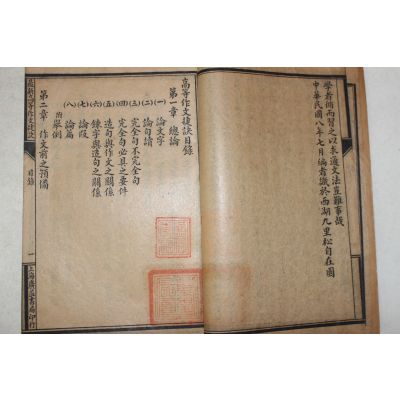 學者循而習之以求通文法豈難事哉
中華民國八年七月編者識於西湖九里松自在園
高等作文捷訣目錄
第一章 總論
(一) 論文字
(二) 論句讀
(三) 完全句不完全句
(四) 完全句必具之要件
(五) 造句與作文之關係
(六) 鍊字與造句之關係
(七) 論段
(八) 論篇
附舉例
第二章 作文前之預備
目錄
一